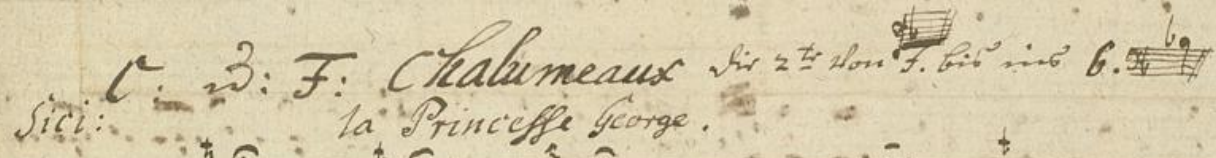 C. u: F: Chalumeaux die 2te Von F. bis ins b.
Sici: la Princesse George.